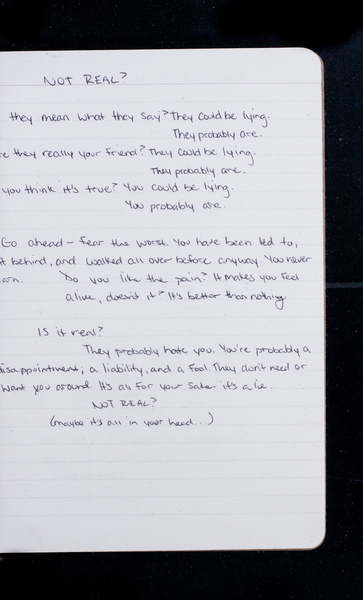 NOT REAL?
they mean what they say? They could be lying.
They probably are.
they really your friend? They could be lying.
They probably are.
you think it's true? You could be lying.
You probably are.
Go ahead - fear the worst. You have been led to,
behind, and walked all over before anyway. You never
Do you like the pain? It makes you feel
alive, doesn't it? It's better than nothing
Is it real?
They probably hate you. You're probably a
disappointment, a liability, and a fool. They don't need or
want you around. It's all for your sake it's a lie.
NOT REAL?
(maybe it's all in your head...)